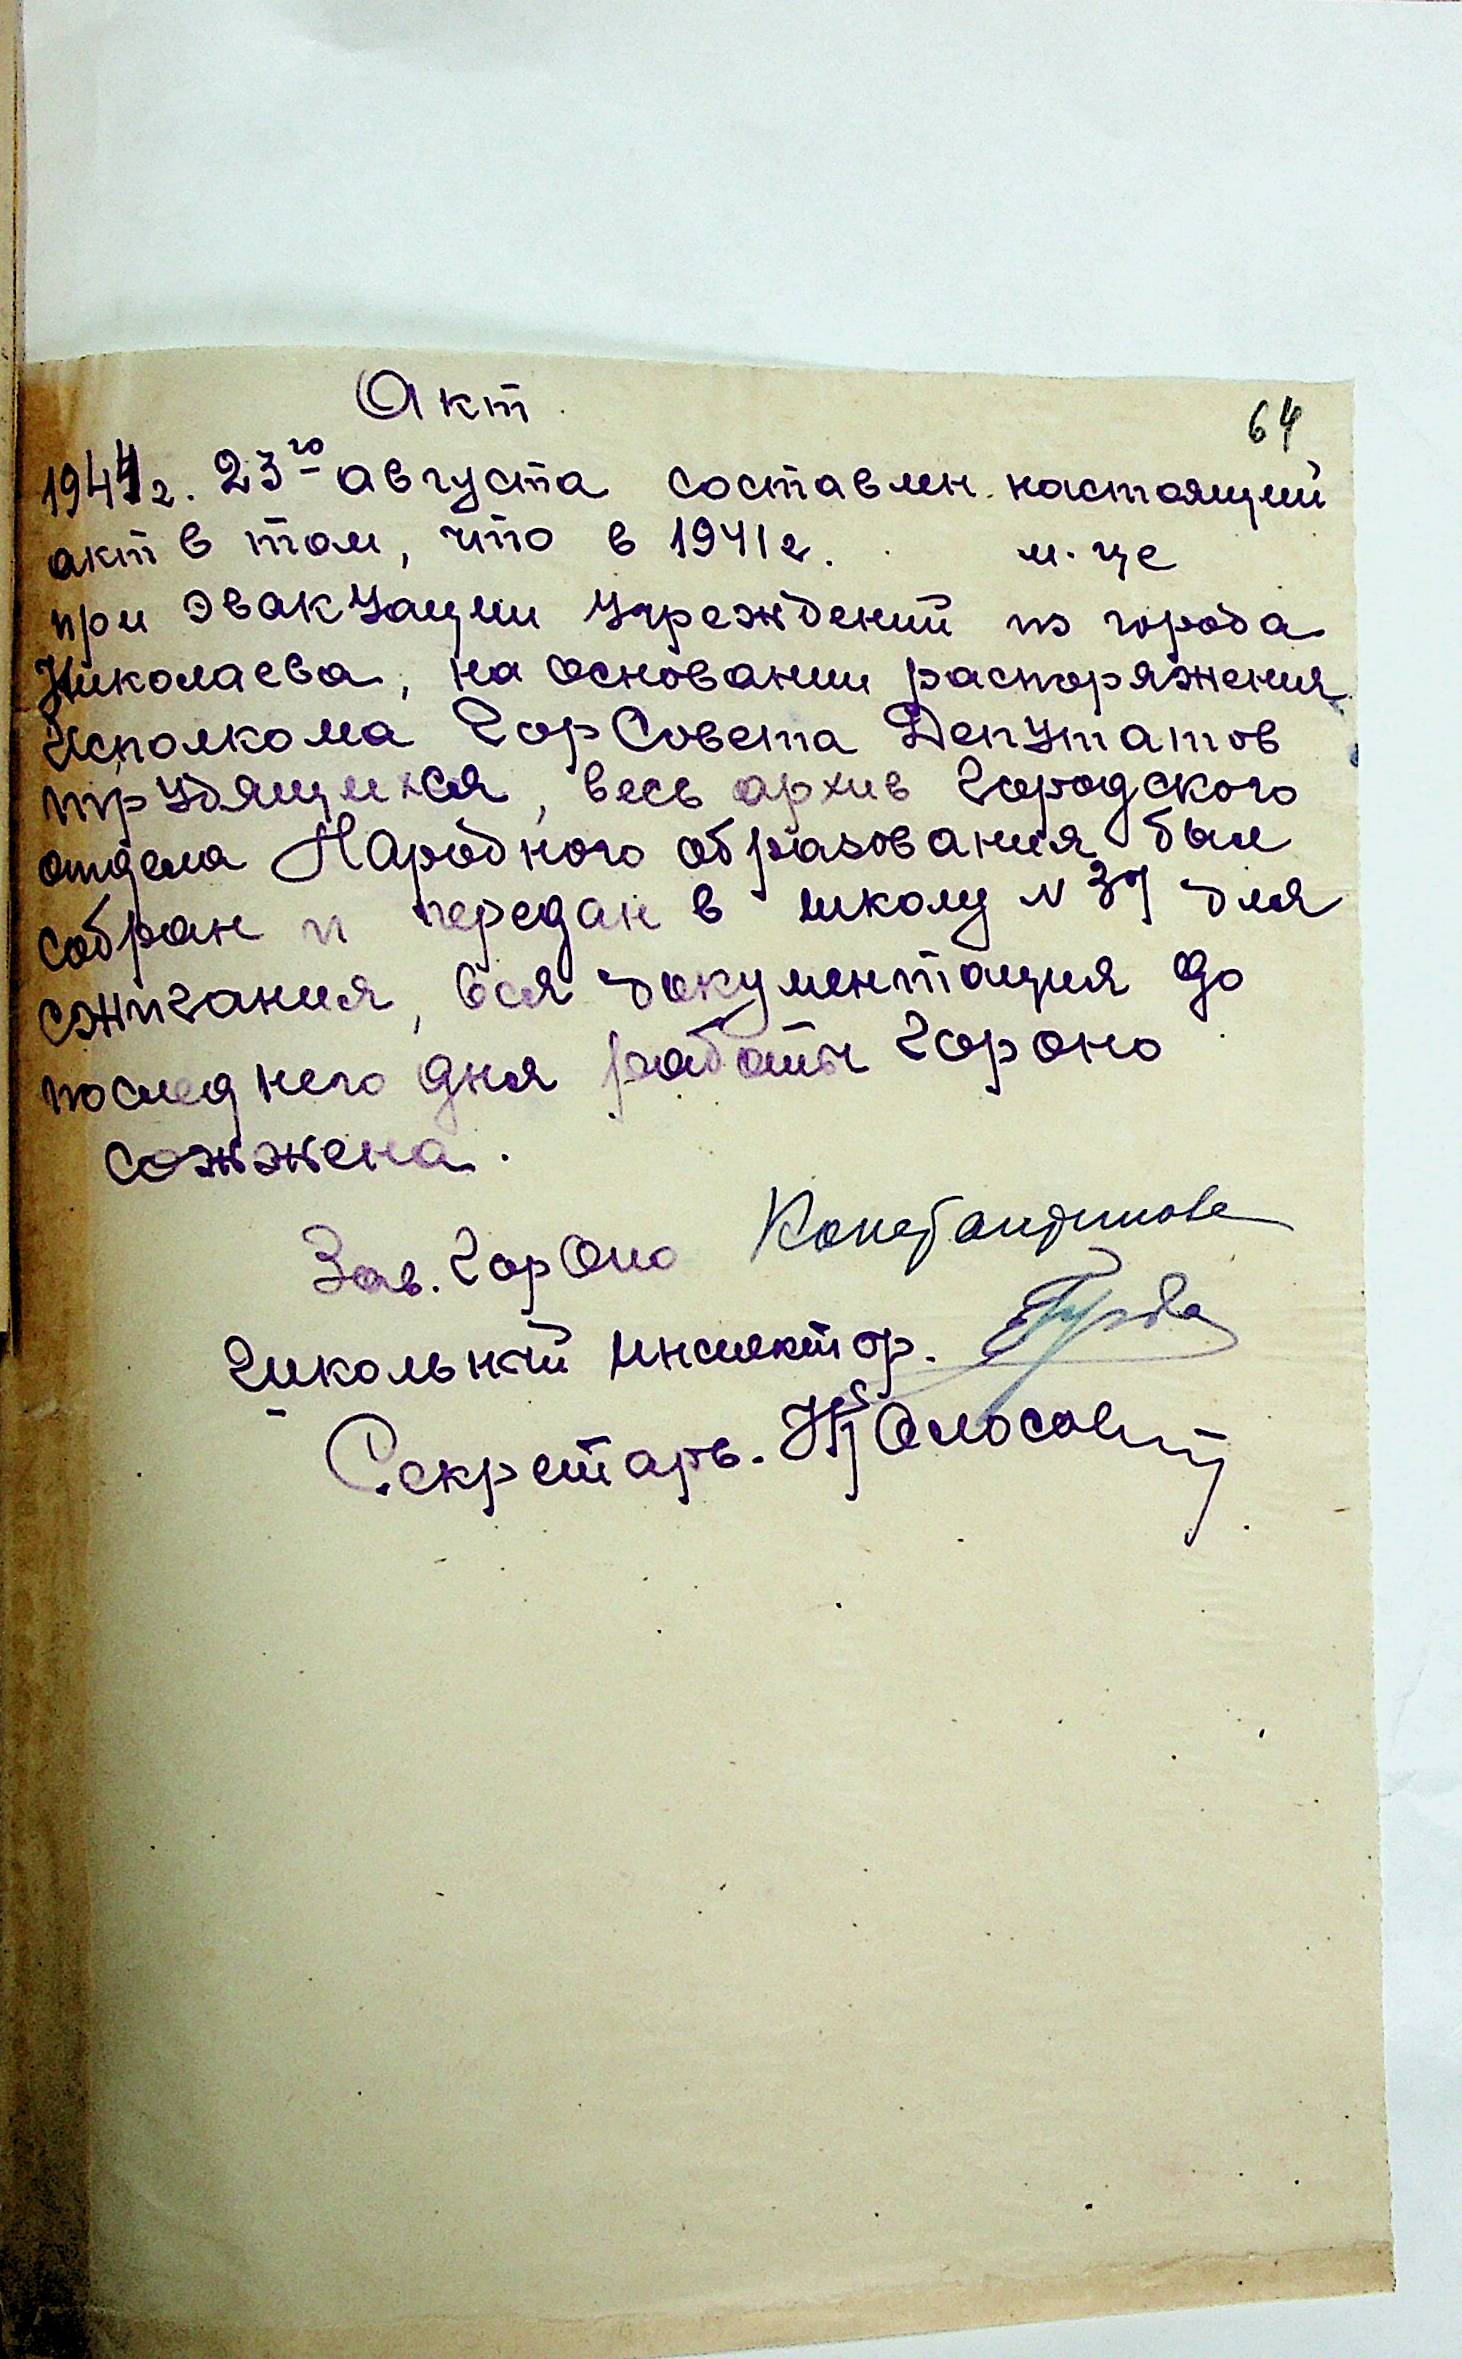 Акт
64
1944 г. 23го августа составлен настоящий
акт в том, что в 1941 г. м-це
при эвакуации учреждений из города
Николаева, на основании распоряжения
Исполкома ГорСовета Депутатов
трудящихся, весь архив Городского
отдела Народного образования был
собран и передан в школу N 37 для
сжигания, вся документация до
последнего дня работы Гороно
сожжена.
Зав. ГорОно Константинова
Школьный инспектор.
Секретарь.